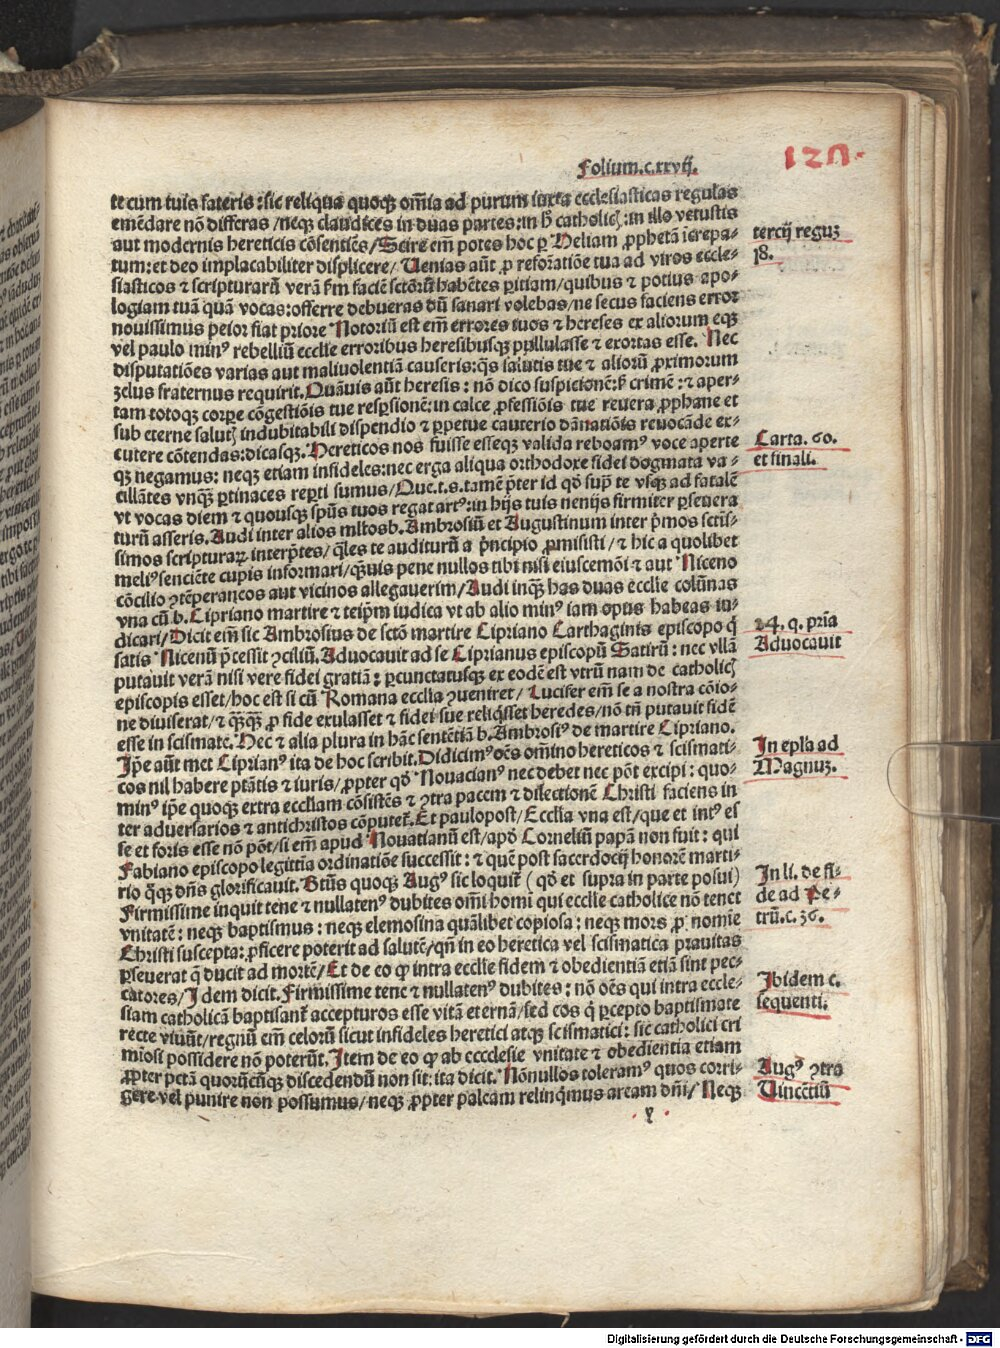 Folium.c.xxvij.
127.
te cum tuis fateris: sic reliqua quoqꝫ om̄ia ad purum iuxta ecclesiasticas regulas
emēdare nō differas / neqꝫ claudices in duas partes: in h̄ catholicꝭ: in illo vetustis
aut modernis hereticis cōsentiēs / Scire em̄ potes hoc ꝑ Heliam ꝓphetā īcrepa⸗
tum: et deo implacabiliter displicere / Uenias aūt ꝓ reforatiōe tua ad viros eccle⸗
siasticos ⁊ scripturarū verā fm faciē sctōrū habētes ꝑitiam / quibus ⁊ potius apo⸗
logiam tuā quā vocas: offerre debueras dū sanari volebas / ne secus faciens error
nouissimus peior fiat priore Notoriū est em̄ errores tuos ⁊ hereses ex aliorum eqꝫ
vel paulo minꝰ rebelliū ecclīe erroribus heresibusqꝫ pullulasse ⁊ exortas esse. Nec
disputatiōes varias aut maliuolentiā causeris: q̄s salutis tue ⁊ aliorū ꝓximorum
zelus fraternus requirit. Quāuis aūt heresis: nō dico suspicionē: s̄ crimē: ⁊ aper⸗
tam totoqꝫ corꝑe cōgestiōis tue resꝑsionē: in calce ꝓfessiōis tue reuera ꝓphane et
sub eterne salutꝭ indubitabili dispendio ⁊ ꝑpetue cauterio dānatiōis reuocāde ex⸗
cutere cōtendas: dicasqꝫ. Hereticos nos fuisse esseqꝫ valida reboamꝰ voce aperte
qꝫ negamus: neqꝫ etiam infideles: nec erga aliqua orthodoxe fidei dogmata va⸗
cillātes vnqꝫ ꝑtinaces reꝑti sumus / Que. t. s. tamē p̄ter id qd̄ sup̄ te vsqꝫ ad fatalē
vt vocas diem ⁊ quousqꝫ spūs tuos regat artꝰ: in hijs tuis nenijs firmiter ꝑseuera
turū asseris. Audi inter alios mltos b. Ambrosiū et Augustinum inter p̄mos sctīs⸗
simos scripturaꝝ interp̄tes / q̄les te auditurū a p̄ncipio ꝓmisisti / ⁊ hic a quolibet
meliꝰ senciēte cupis informari / q̄uis pene nullos tibi nisi eiuscemōi ⁊ aut Niceno
cōcilio ꝯtēperancos aut vicinos allegauerim / Audi inqꝫ has duas ecclīe colūnas
vna cū b. Cipriano martire ⁊ teip̄m iudica vt ab alio minꝰ iam optis habeas iu⸗
dicari / Dicit em̄ sic Ambrosius de sctō martire Cipriano Carthaginis episcopo q̄
satis Nicenū p̄cessit ꝯciliū. Aduocauit ad se Ciprianus episcopū Satirū: nec vllā
putauit verā nisi vere fidei gratiā: ꝑcunctatusqꝫ ex eodē est vtrū nam de catholicꝭ
episcopis esset / hoc est si cū Romana ecclīa ꝯueniret / Lucifer em̄ se a nostra cōio⸗
ne diuiserat / ⁊ q̄qꝫ ꝓ fide exulasset ⁊ fidei sue reliq̄sset heredes / nō tn̄ putauit fidē
esse in scismate. Hec ⁊ alia plura in hāc sentētiā b. Ambrosiꝰ de martire Cipriano.
Ip̄e aūt met Ciprianꝰ ita de hoc scribit. Didicimꝰ oēs om̄ino hereticos ⁊ scismati⸗
cos nil habere ptātis ⁊ iuris / ꝓpter qd̄ Nouacianꝰ nec debet nec pōt excipi: quo⸗
minꝰ ip̄e quoqꝫ extra eccliam cōsistēs ⁊ ꝯtra pacem ⁊ dilectionē Christi faciens in
ter aduersarios ⁊ antichristos cōputet᷑. Et paulopost / Ecclīa vna est / que et intꝰ es
se et foris esse nō pōt / si em̄ apud Nouatianū est / apd̄ Corneliū papā non fuit: qui
Fabiano episcopo legittīa ordinatiōe successit: ⁊ quē post sacerdocij honorē marti⸗
rio q̄qꝫ dn̄s glorificauit. Btūs quoqꝫ Augꝰ sic loquit᷑ (qd̄ et supra in parte posui)
Firmissime inquit tene ⁊ nullatenꝰ dubites om̄i homi qui ecclīe catholice nō tenet
vnitatē: neqꝫ baptismus: neqꝫ elemosina quālibet copiosa: neqꝫ mors ꝓ nomīe
Christi suscepta: ꝓficere poterit ad salutē / qn̄ in eo heretica vel scismatica prauitas
ꝑseuerat q̄ ducit ad mortē / Et de eo qꝙ intra ecclīe fidem ⁊ obedientiā etiā sint pec⸗
catores / Idem dicit. Firmissime tene ⁊ nullatenꝰ dubites: nō oēs qui intra eccle⸗
siam catholicā baptisant᷑ accepturos esse vitā eternā / sed eos q̄ ꝑcepto baptismate
recte viuūt / regnū em̄ celorū sicut infideles heretici atqꝫ scismatici: sic catholici cri
mīosi possidere nō poterūt. Item de eo ꝙ ab ecccлesie vnitate ⁊ obedientia etiam
ꝓpter pctā quorūcūqꝫ discedendū non sit: ita dicit. Nōnullos toleramꝰ quos corri⸗
gere vel punire non possumus / neqꝫ ꝓpter paleam relinq̄mus aream dn̄i / Neqꝫ
y
tercij reguꝫ
18.
Carta. 60.
et finali.
24. q. pr̄ia
Aduocauit
In epl̄a ad
Magnuꝫ.
In li. de fi⸗
de ad Pe⸗
trū. c. 36.
Ibidem c.
sequenti.
Augꝰ ꝯtra
Uincētiū
Digitalisierung gefördert durch die Deutsche Forschungsgemeinschaft - DFG